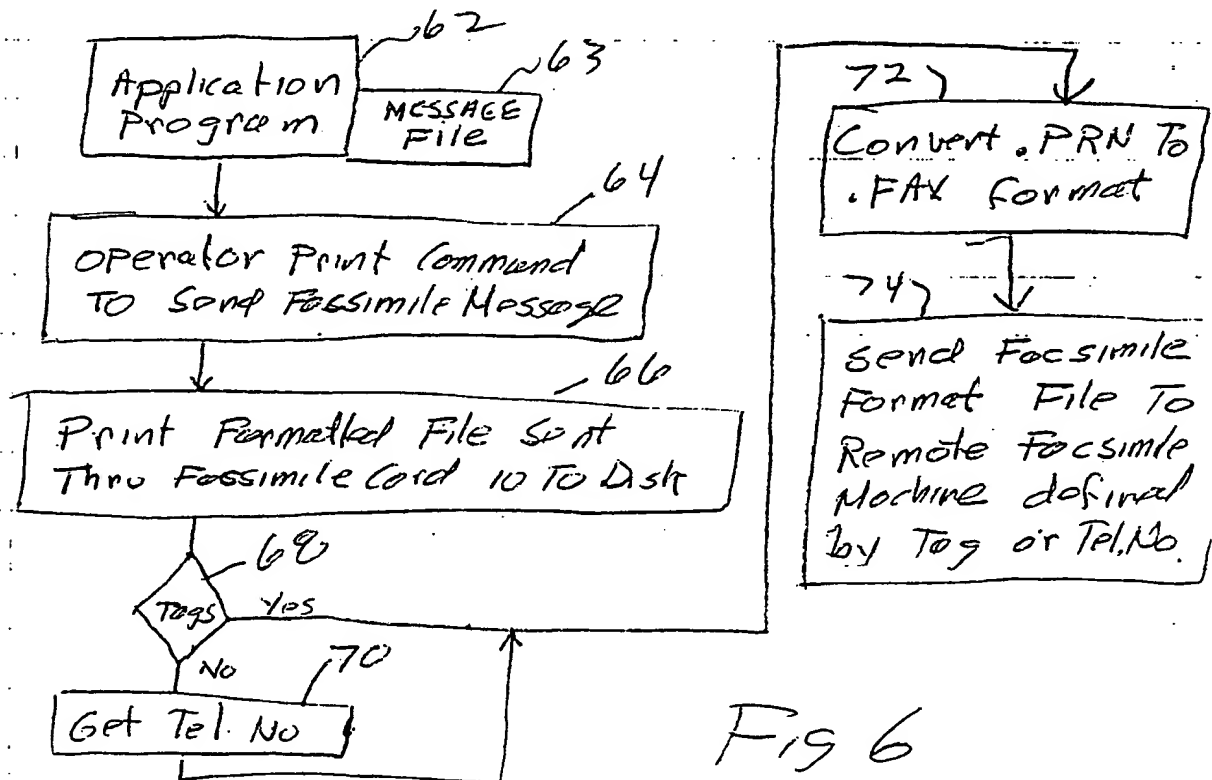 62
Application
Program
63
MESSAGE
File
64
Operator Print Command
To Send Facsimile Message
66
Print Formatted File Sent
Thru Facsimile Card 10 To Disk
68
Tags
Yes
No
70
Get Tel. No
72
Convert .PRN To
.FAX format
74
Send Facsimile
Format File To
Remote Facsimile
Machine defined
by Tag or Tel.No.
Fig 6